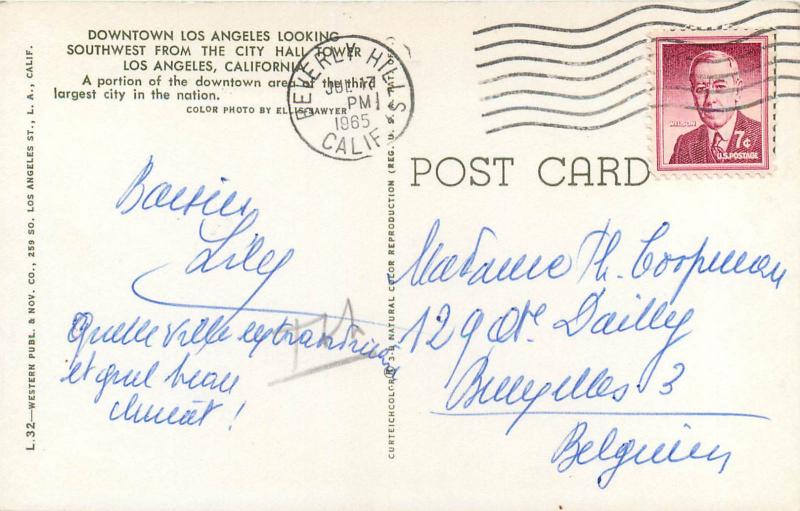 DOWNTOWN LOS ANGELES LOOKING
SOUTHWEST FROM THE CITY HALL TOWER
LOS ANGELES, CALIFORNIA
A portion of the downtown area of the third
largest city in the nation.
COLOR PHOTO BY ELLIS SAWYER
BEVERLY HILLS
CALIF
JUL 17
PM
1965
WILSON
7¢
U.S. POSTAGE
POST CARD
Baisers
Lily
Quelle ville extraordinaire
et quel beau
climat!
Madame Th. Coopman
129 Dailly
Bruxelles 3
Belgium
L.32—WESTERN PUBL. & NOV. CO., 259 SO. LOS ANGELES ST., L. A., CALIF.
CURTEICHCOLOR® 3-D NATURAL COLOR REPRODUCTION (REG. U.S.A.